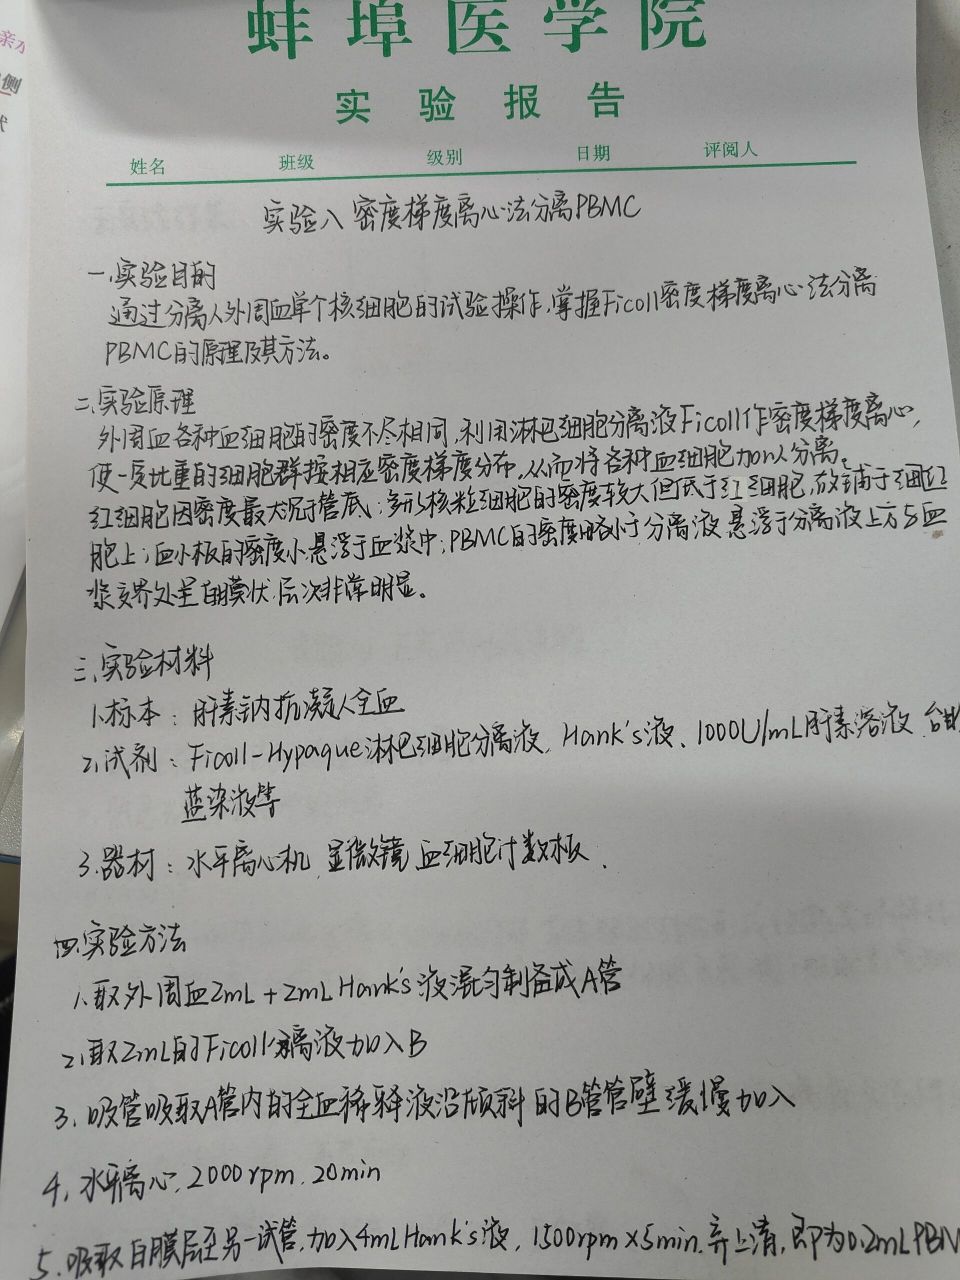 蚌埠医学院
实验报告
姓名 班级 级别 日期 评阅人
实验八 密度梯度离心法分离PBMC
一.实验目的
通过分离人外周血单个核细胞的试验操作,掌握Ficoll密度梯度离心法分离
PBMC的原理及其方法。
二.实验原理
外周血各种血细胞的密度不尽相同,利用淋巴细胞分离液Ficoll作密度梯度离心,
使一定比重的细胞群按相应密度梯度分布,从而将各种血细胞加以分离。
红细胞因密度最大沉于管底;多形核粒细胞的密度较大但低于红细胞,故铺于细红
胞上;血小板的密度小悬浮于血浆中;PBMC的密度略小于分离液,悬浮于分离液上方与血
浆交界处呈白膜状,层次非常明显。
三.实验材料
1.标本:肝素钠抗凝人全血
2.试剂:Ficoll-Hypaque淋巴细胞分离液,Hank's液、1000U/mL肝素溶液,台盼
蓝染液等
3.器材:水平离心机,显微镜,血细胞计数板.
四.实验方法
1.取外周血2mL+2mL Hank's液混匀制备成A管
2.取2mL的Ficoll分离液加入B
3.吸管吸取A管内的全血稀释液沿倾斜的B管管壁缓慢加入
4.水平离心,2000rpm,20min
5.吸取白膜层至另一试管,加入4mL Hank's液,1500rpm×5min,弃上清,即为0.2mL PBM
亲水
侧